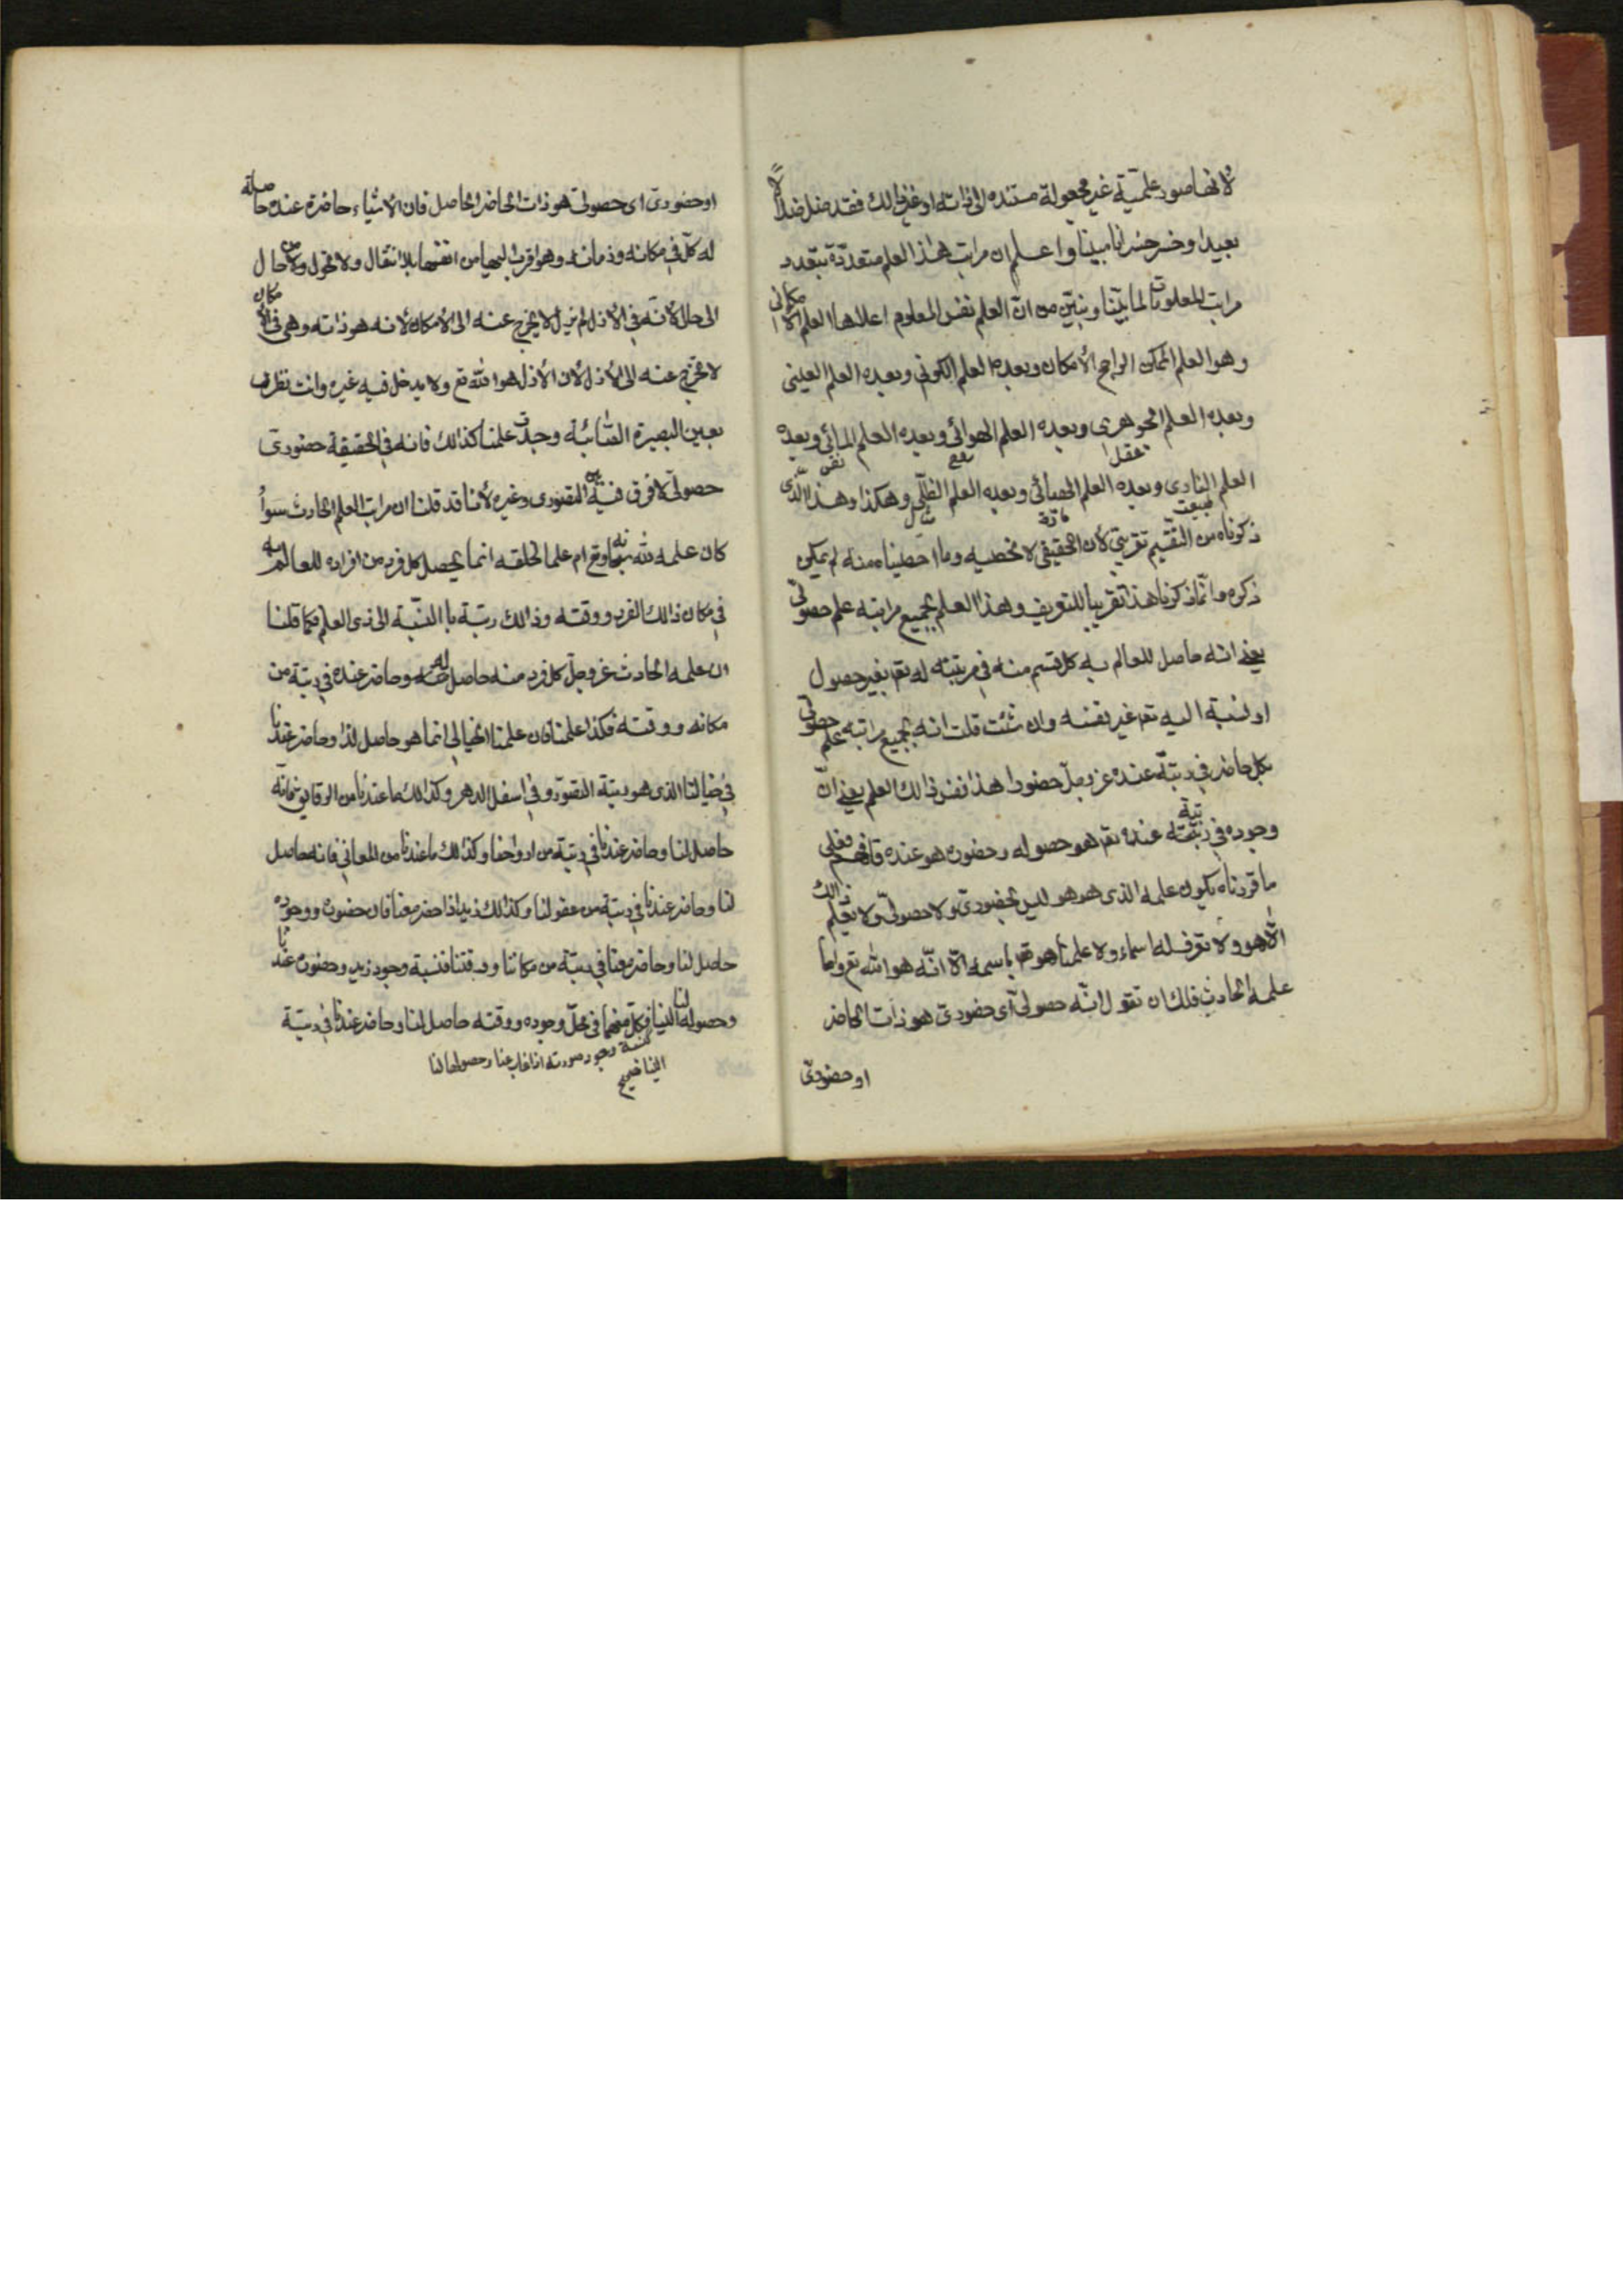 لأنها صور علميّة غير مجعولة مستنده الى ذاته او غير ذالك فقد ضل ضلالاً
بعيدا وخسر خسرانا مبينا واعلم ان مراتب هذا العلم متعدّدة بتعدد
مراتب المعلومات لما بيّنا ونبيّن من انّ العلم نفس المعلوم اعلاها العلم الامكاني
وهو العلم الممكن الراجح الأمكان وبعده العلم الكوني وبعده العلم العيني
وبعده العلم الجوهرى وبعده العلم الهوائي وبعده العلم المائي وبعده
عقل
نفس
العلم النارى وبعده العلم الهبائي وبعده العلم الظلّي وهكذا وهذا الّذى
طبيعت
مادة
مثال
ذكرناه من التقسيم تقريبيّ لأن الحقيقي لا نحصيه وما احصيناه منه لم يمكن
ذكره وانّما ذكرنا هذا تقريبا للتعريف وهذا العلم بجميع مراتبه علم حصوليّ
يعني انه حاصل للعالم به كل قسم منه في مرتبته له تع بغير حصول
او نسبة اليه تع غير نفسه وان شئت قلت انه بجميع مراتبه علم حصولي
بكل حاضر في رتبته عنده عز وجل حضورا هذا نفس ذالك العلم يعني انّ
وجوده في رتبته عنده تع هو حصوله وحضوره هو عنده فافهم فعلى
ما قررناه يكون علمه الذى هو هو ليس بحضوريّ ولا حصوليّ ولا يعلم ذالك
الّا هو ولا نعرف له اسماء ولا علمنا هو تع باسمه الّا انّه هو الله تع وامّا
علمه الحادث فلك ان تقول انّه حصوليّ اى حضوريّ هو ذات الحاضر
او حضوريّ
او حضوريّ اى حصوليّ هو ذات الحاضر الحاصل فان الأشياء حاضرة عنده حاصلة
له كلّ في مكانه وزمانه وهو اقرب اليها من انفسها بلا انتقال ولا تحول من حال
الى حال لأنّه في الأزل لم يزل لا يخرج عنه الى الأمكان لأنه هو ذاته وهي في الأمكان
لا تخرج عنه الى الأزل لأن الأزل هو الله تع ولا يدخل فيه غيره وانت نظرت
بعين البصيرة وجدت علمنا كذالك فانه في الحقيقة حضوريّ
حصوليّ لا فرق فيه بين التصورى وغيره لأنا قد قلنا ان مراتب العلم الحادث سواءٌ
كان علمه لله سبحانه وتع ام علما لخلقه انما يحصل كل فرد من افراده للعالم به
في مكان ذالك الفرد ووقته وذالك رتبة با النسبة الى ذى العلم فكما قلنا
ان علمه الحادث عز وجل كل فرد منه حاصل له وحاضر عنده في رتبة من
مكانه ووقته فكذا علمنا فان علمنا الخيالي انما هو حاصل لنا وحاضر عندنا
في خيالنا الذى هو رتبة التصور وفي اسفل الدهر وكذالك ما عندنا من الرقايق فانّه
حاصل لنا وحاضر عندنا في رتبة من ارواحنا وكذالك ما عندنا من المعاني فانه حاصل
لنا وحاضر عندنا في رتبة من عقولنا وكذالك زيد اذا حضر معنا فان حضوره ووجوده
حاصل لنا وحاضر معنا في رتبة من مكاننا ووقتنا فنسبة وجود زيد وحضوره عندنا
وحصوله لنا الينا فكل منهما في محلّ وجوده ووقته حاصل لنا وحاضر عندنا في رتبة
كنسبة وجود صورته اذا غاب عنا وحصولها لنا
الينا صح